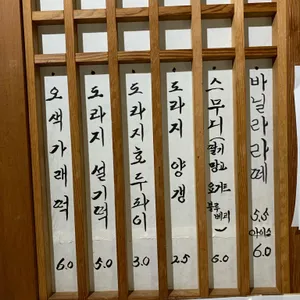 오색가래떡 6.0
도라지설기떡 5.0
도라지호두파이 3.0
도라지 양갱 2.5
스무디(딸기 망고 요거트 블루베리) 6.0
바닐라라떼 5.5
아이스 6.0